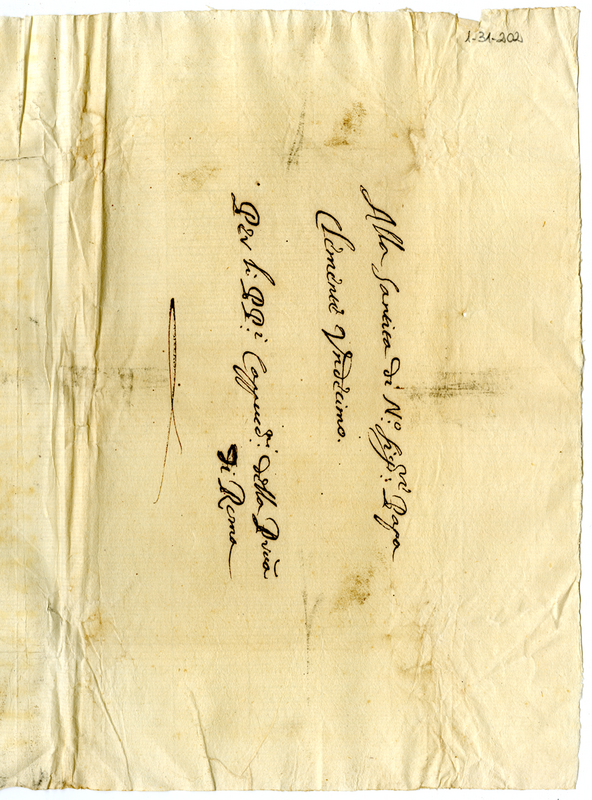 1-31-202
Alla Santità di N.ro Sig.re Papa
Clemente Undecimo.
Per li PP.i Cappucc.i della Prov.a
di Roma